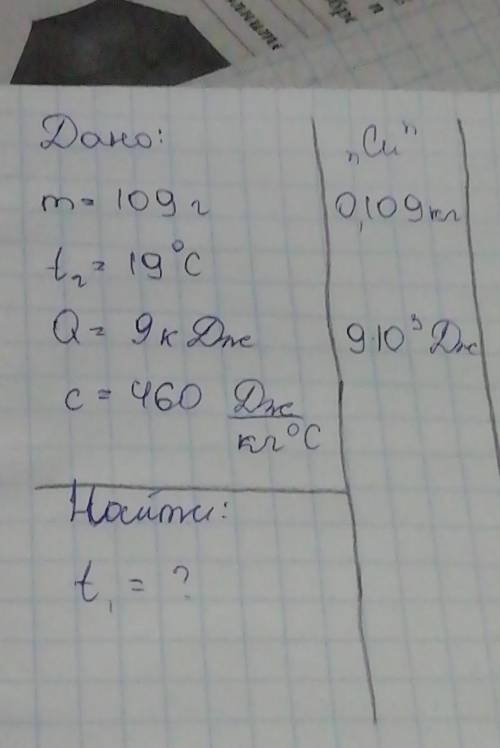 Дано:
m = 109 г
t₂ = 19°C
Q = 9 к Дж
c = 460 Дж
кг°C
Найти:
t₁ = ?
"Си"
0,109 кг
9·10³ Дж